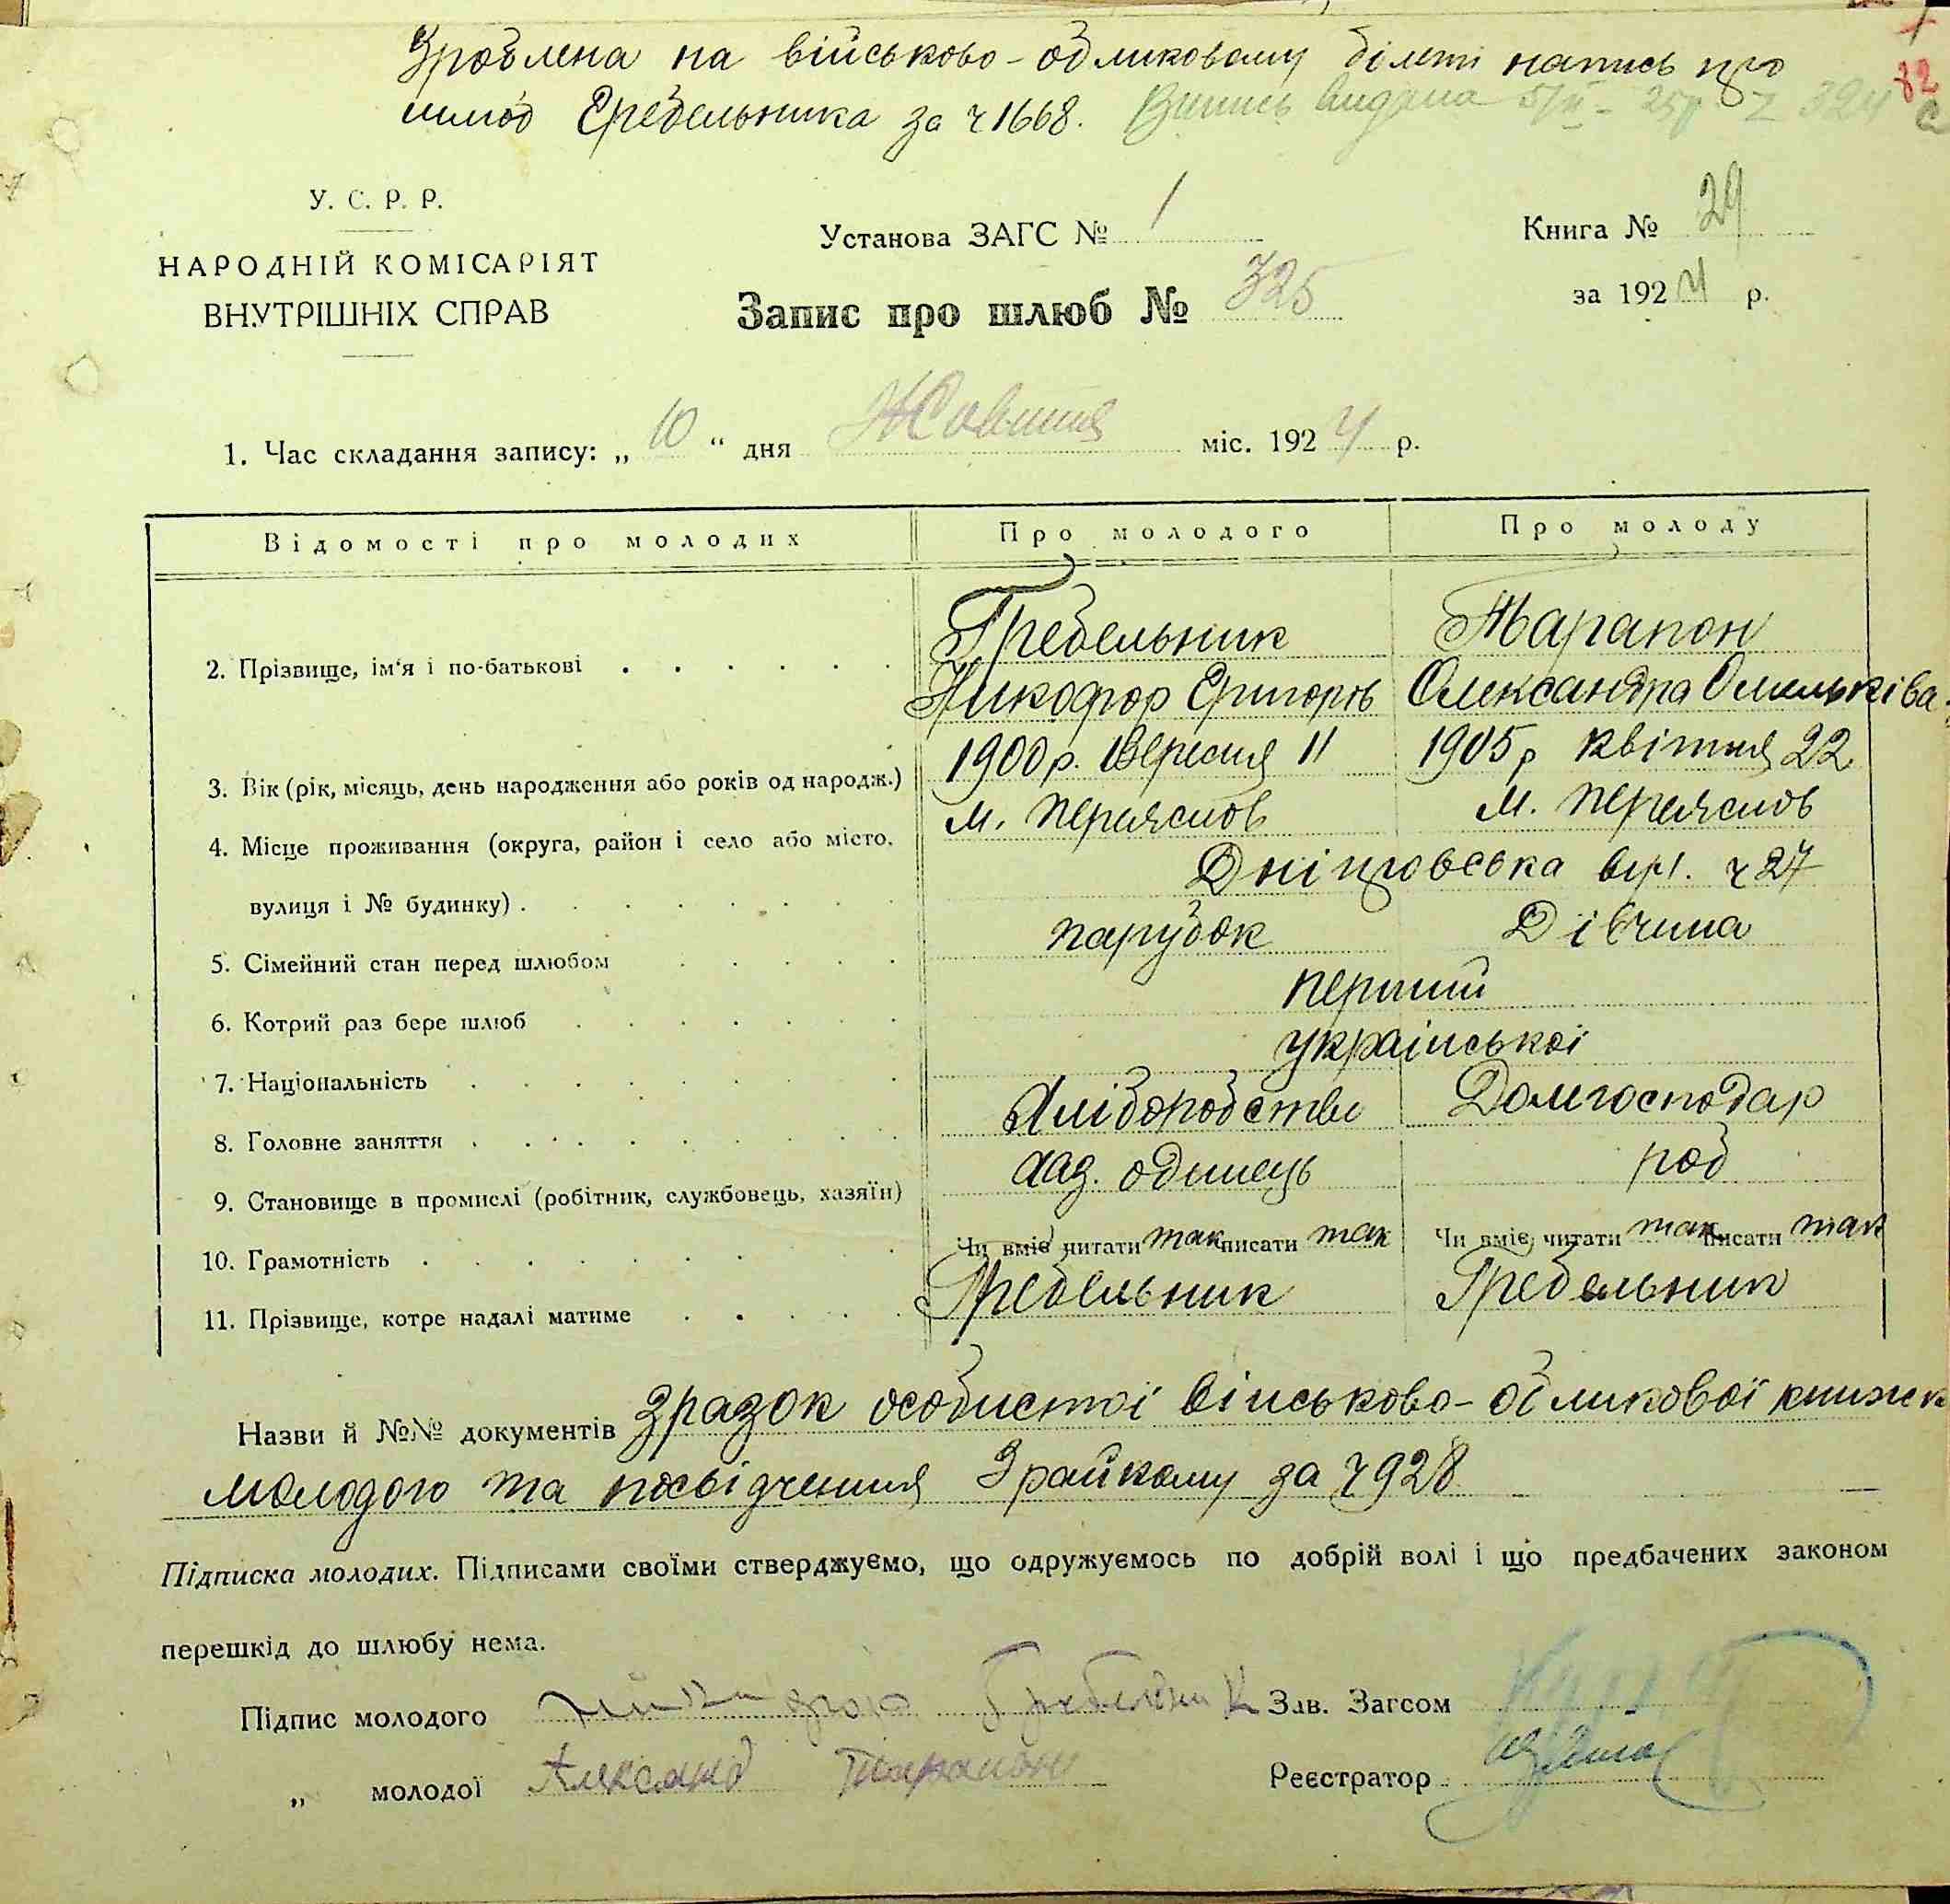 Зроблена на військово-обликовому білеті напись про
шлюб Гребельника за ч 1668. Випись видана 5/II - 25р 324
82
У. С. Р. Р.
НАРОДНІЙ КОМІСАРІЯТ
ВНУТРІШНІХ СПРАВ
Установа ЗАГС № 1
Запис про шлюб № 325
Книга № 29
за 1924 р.
1. Час складання запису: „ 10 “ дня Жовтня міс. 1924 р.
Відомості про молодих Про молодого Про молоду
2. Прізвище, ім'я і по-батькові Гребельник Тарапон
Никофор Григоров Олександра Омельківа
3. Вік (рік, місяць, день народження або років од народж.) 1900 р. Вересня 11 1905 р Квітня 22
4. Місце проживання (округа, район і село або місто, м. Переяслов м. Переяслов
вулиця і № будинку) Дніпровська вул. ч 27
5. Сімейний стан перед шлюбом парубок Дівчина
6. Котрий раз бере шлюб перший
7. Національність української
8. Головне заняття Хліборобство Домгосподар
9. Становище в промислі (робітник, службовець, хазяїн) одинець род
10. Грамотність Чи вміє читати так писати так Чи вміє читати так писати так
11. Прізвище, котре надалі матиме Гребельник Гребельник
Назви й №№ документів Зразок особистої військово-обликової книжек
молодого та посвідчення Зрайкому за ч 928
Підписка молодих. Підписами своїми стверджуємо, що одружуємось по добрій волі і що предбачених законом
перешкід до шлюбу нема.
Підпис молодого Гребельник Зав. Загсом
„ молодої Александ Тарапон Реєстратор